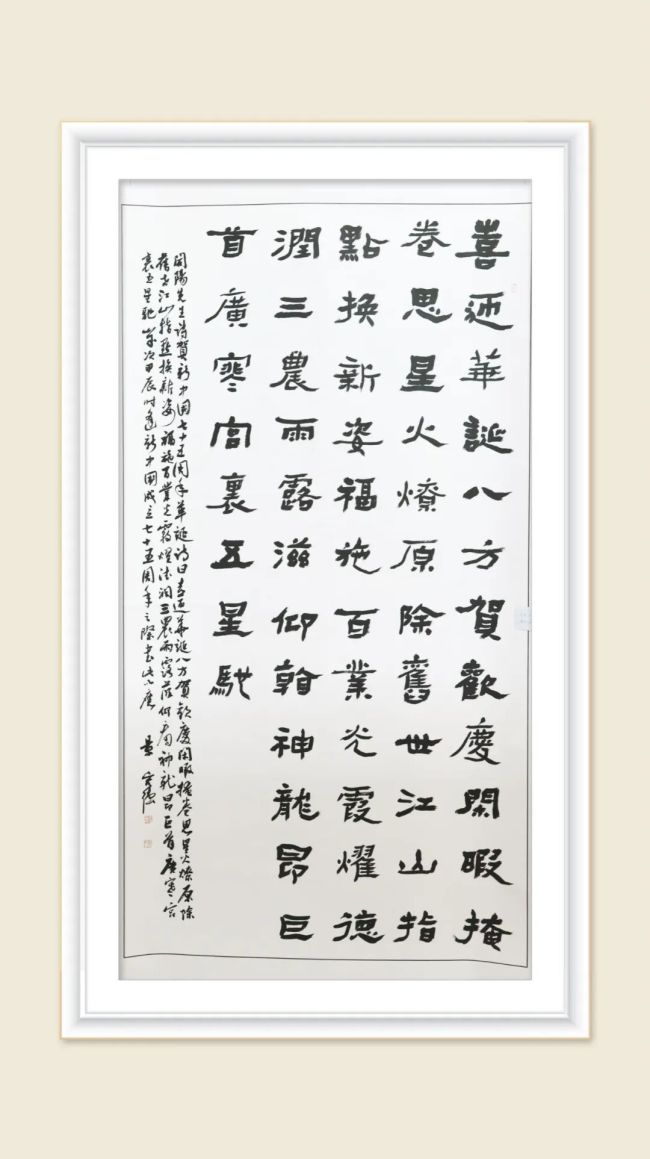 喜迊華誕八方賀歡慶閑暇掩
卷思星火燎原除舊世江山指
點换新姿福施百業光霞燿德
潤三農雨露滋仰翰神龍昂巨
首廣寒宮裏五星馳
開陽先生詩賀新中国七十五周年華誕詩曰喜迊華誕八方賀歡慶閑暇掩卷思星火燎原除
舊世江山指點换新姿福施百業光霞燿德潤三農雨露滋仰翰神龍昂巨首廣寒宮
裏五星馳歲次甲辰时逢新中國成立七十五周年之際書此以慶